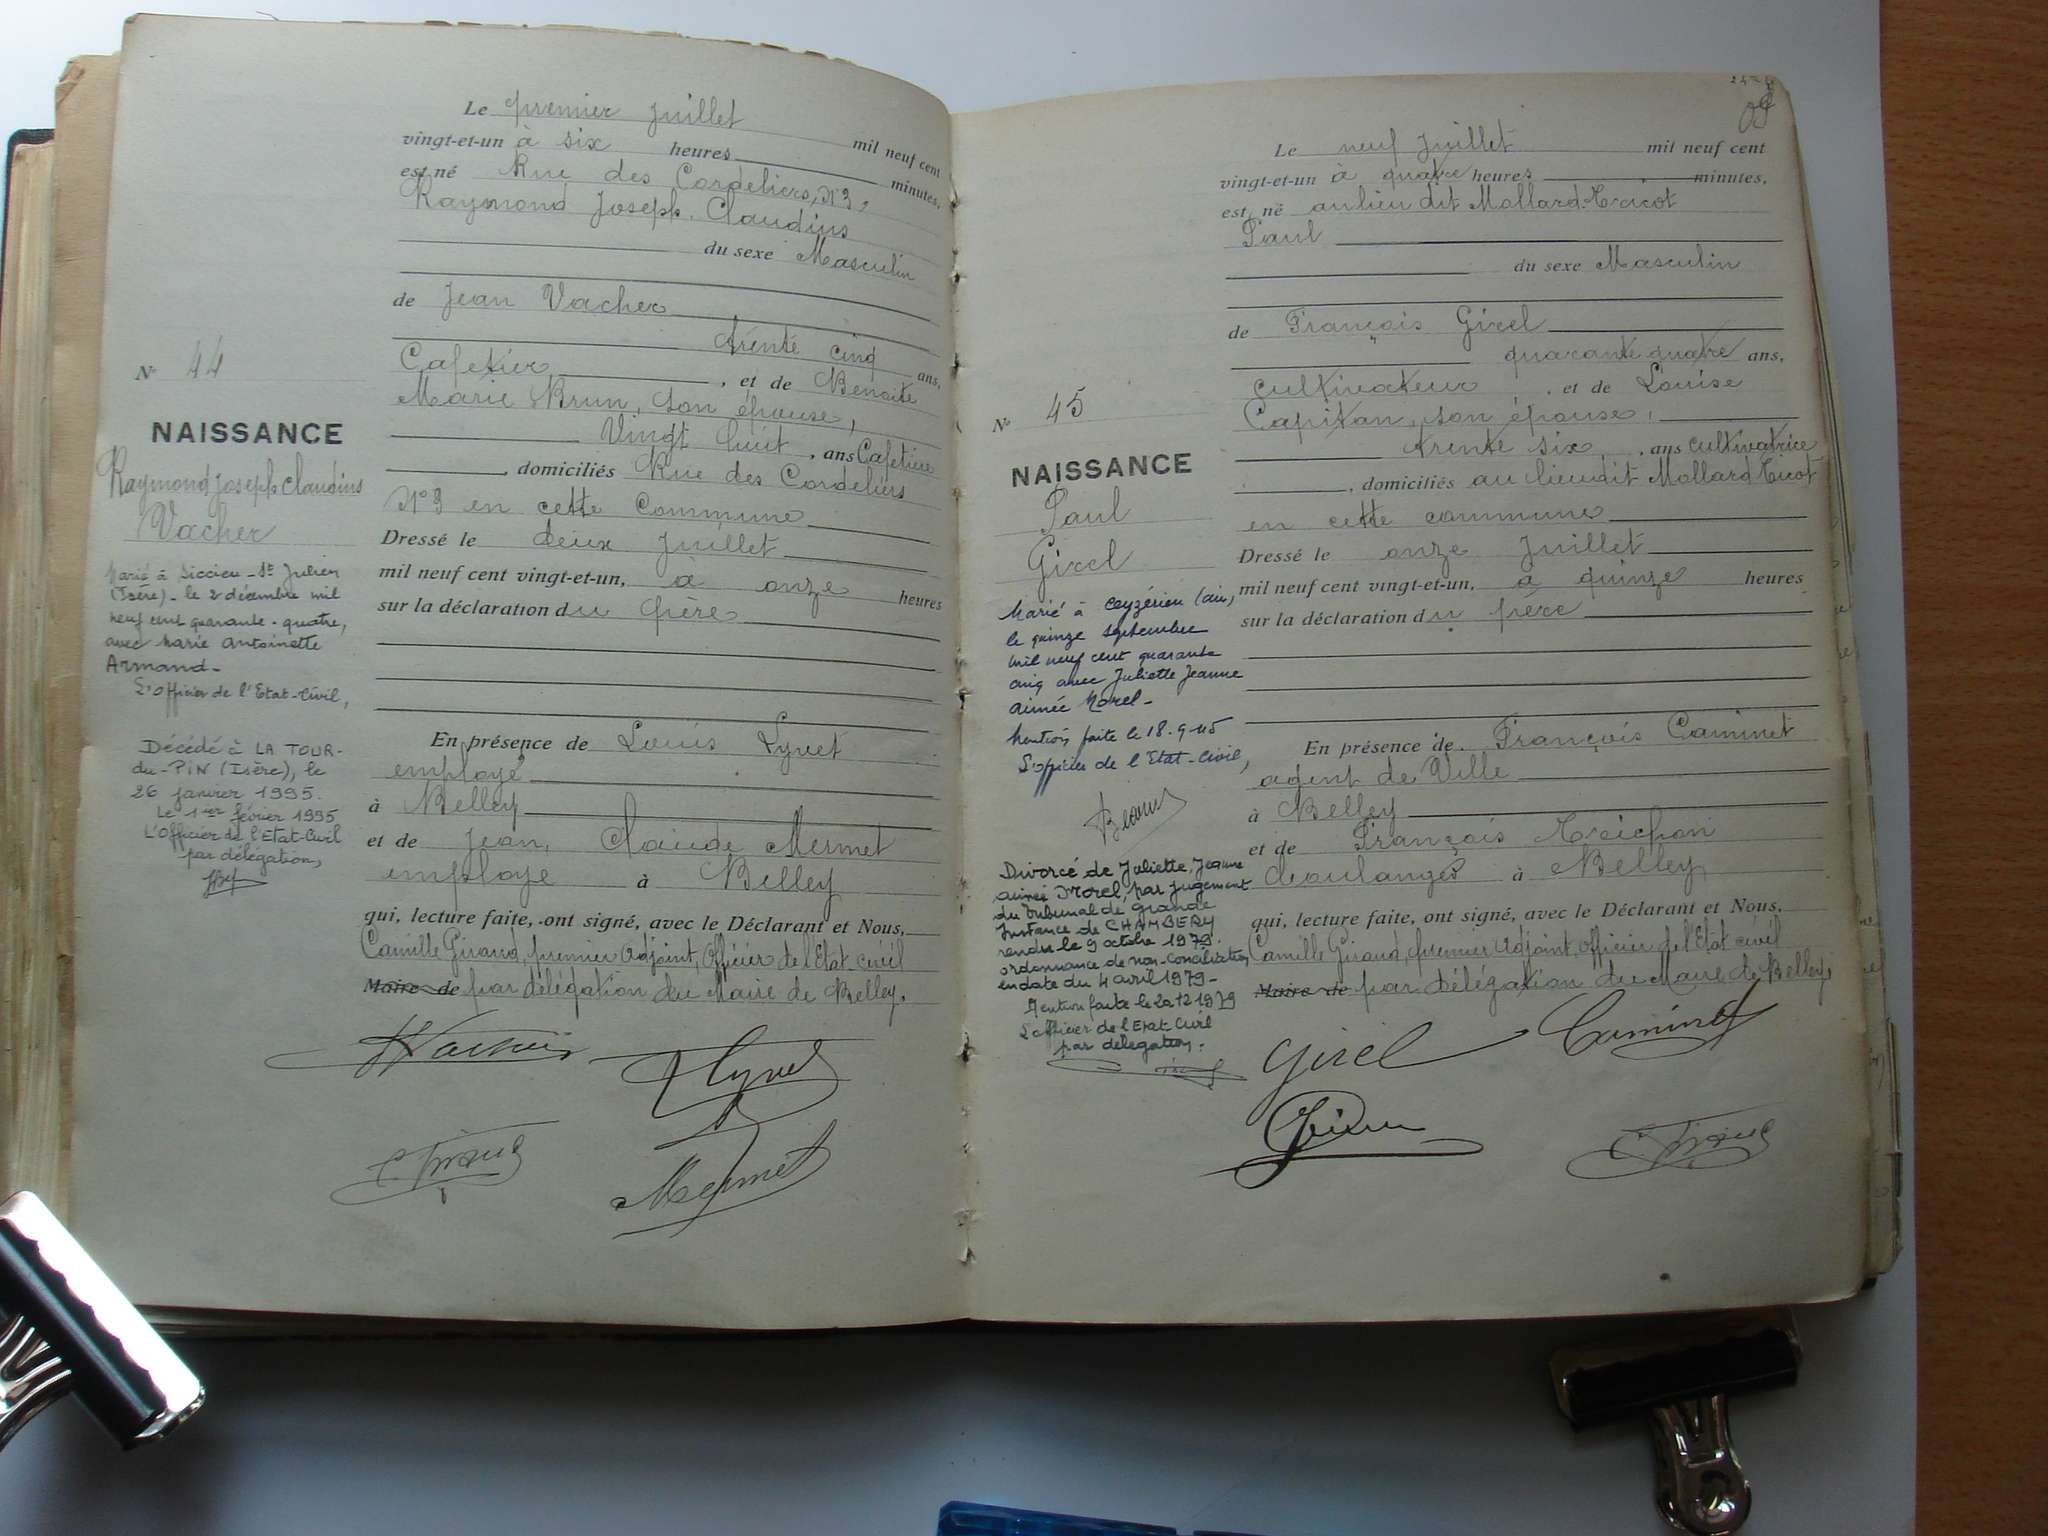 Le premier juillet mil neuf cent
vingt-et-un à six heures minutes,
est né Rue des Cordeliers, N° 3,
Raymond Joseph Claudius
du sexe Masculin
de Jean Vacher
trente cinq ans,
Cafetier, et de Benoite
Marie Brun, son épouse,
Vingt huit, ans Cafetière
, domiciliés Rue des Cordeliers
N° 3 en cette Commune
Dressé le deux Juillet
mil neuf cent vingt-et-un, à onze heures
sur la déclaration du Père
En présence de Louis Lyvet
employé
à Belley
et de Jean, Claude Mermet
employé à Belley
qui, lecture faite, ont signé, avec le Déclarant et Nous,
Camille Giraud, premier Adjoint, Officier de l'Etat-civil
Maire de par délégation du Maire de Belley.
Lyvet
Mermet
N° 44
NAISSANCE
Raymond Joseph Claudius
Vacher
Marié à Siccieu-St Julien
(Isère) - le 2 décembre mil
neuf cent quarante-quatre,
avec Marie Antoinette
Armand-
L'officier de l'Etat-Civil,
Décédé à LA TOUR-
du-PIN (Isère), le
26 janvier 1995.
Le 1er février 1995
L'Officier de l'Etat-Civil
par délégation,
Le neuf Juillet mil neuf cent
vingt-et-un à quatre heures minutes,
est né au lieu dit Mollard-Tricot
Paul
du sexe Masculin
de François Girel
quarante quatre ans,
cultivateur, et de Louise
Capitan, son épouse,
trente six, ans cultivatrice
, domiciliés au lieu dit Mollard Tricot
en cette commune
Dressé le onze Juillet
mil neuf cent vingt-et-un, à quinze heures
sur la déclaration du père
En présence de François Caminet
agent de Ville
à Belley
et de François Trichon
boulanger à Belley
qui, lecture faite, ont signé, avec le Déclarant et Nous,
Camille Giraud, premier Adjoint, officier de l'Etat civil
Maire de par délégation du Maire de Belley,
Girel
Caminet
N° 45
NAISSANCE
Paul
Girel
Marié à Ceyzérieu (Ain),
le quinze septembre
mil neuf cent quarante
cinq avec Juliette Jeanne
Aimée Morel-
Mention faite le 18-9-45
L'officier de l'Etat-Civil,
Divorcé de Juliette, Jeanne
Aimée Morel, par jugement
du Tribunal de Grande
Instance de CHAMBERY
rendu le 9 octobre 1979.
ordonnance de non-conciliation
en date du 4 avril 1979-
Mention faite le 20 12 1979
L'officier de l'Etat-Civil
par délégation.